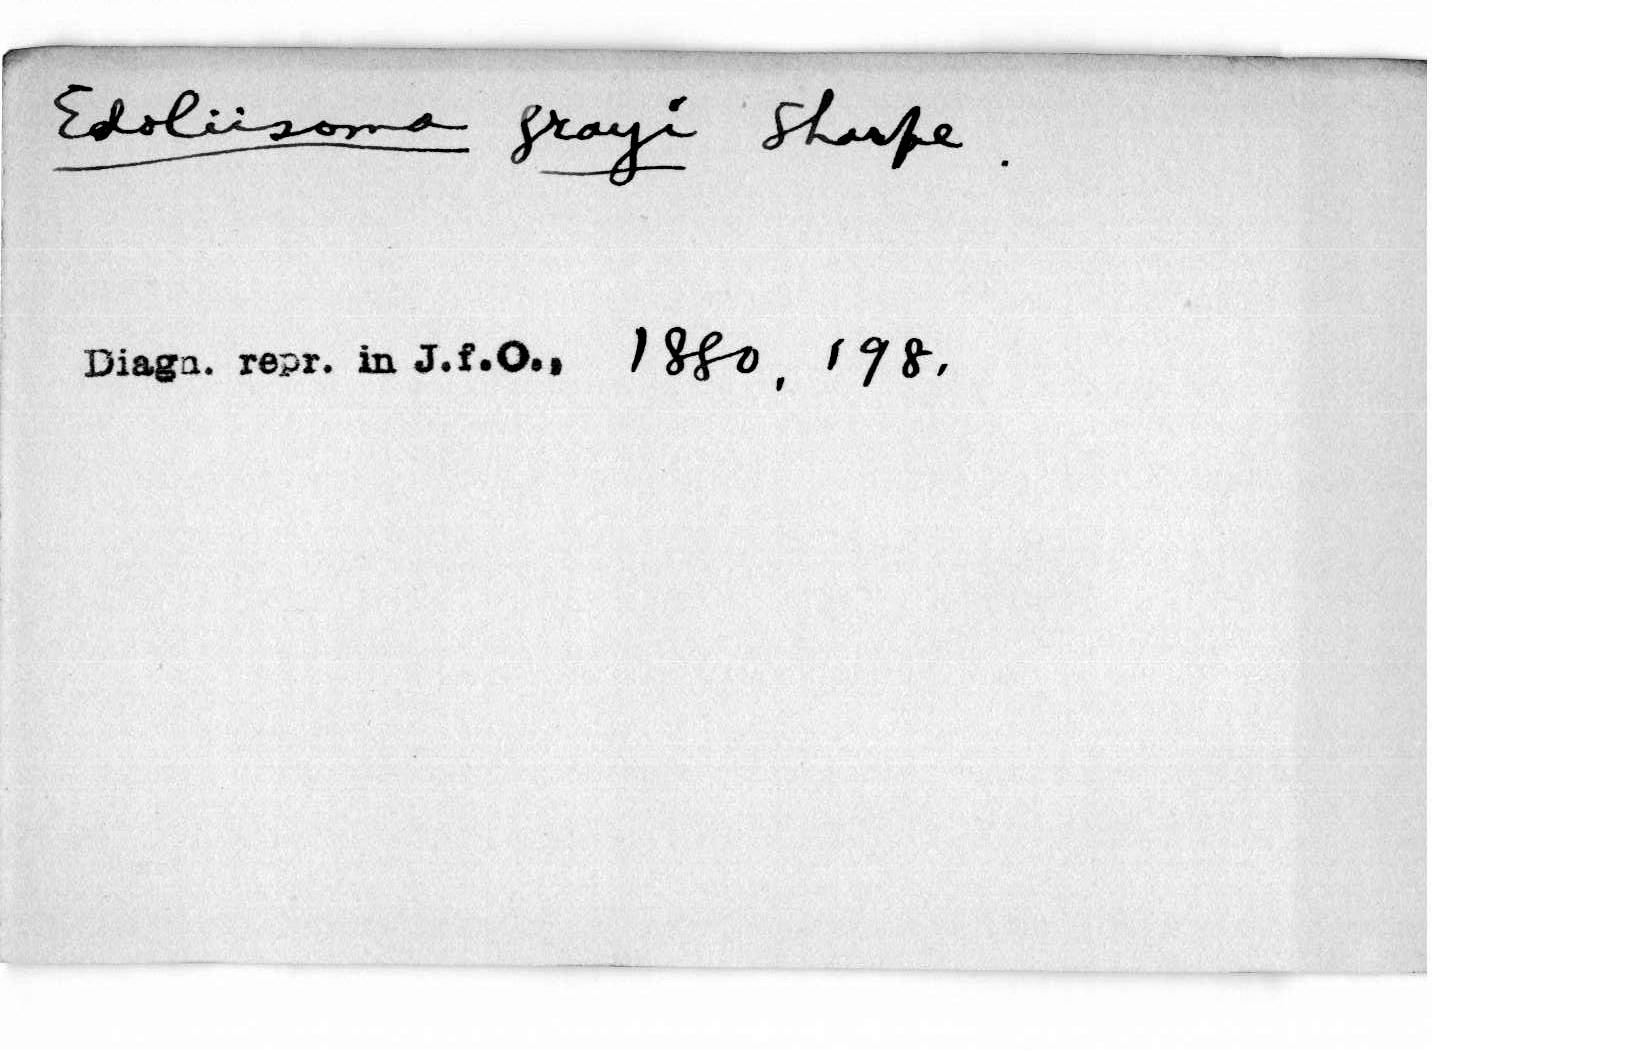 Edoliisoma grayi Sharpe.
Diagn. repr. in J.f.O., 1880, 198.